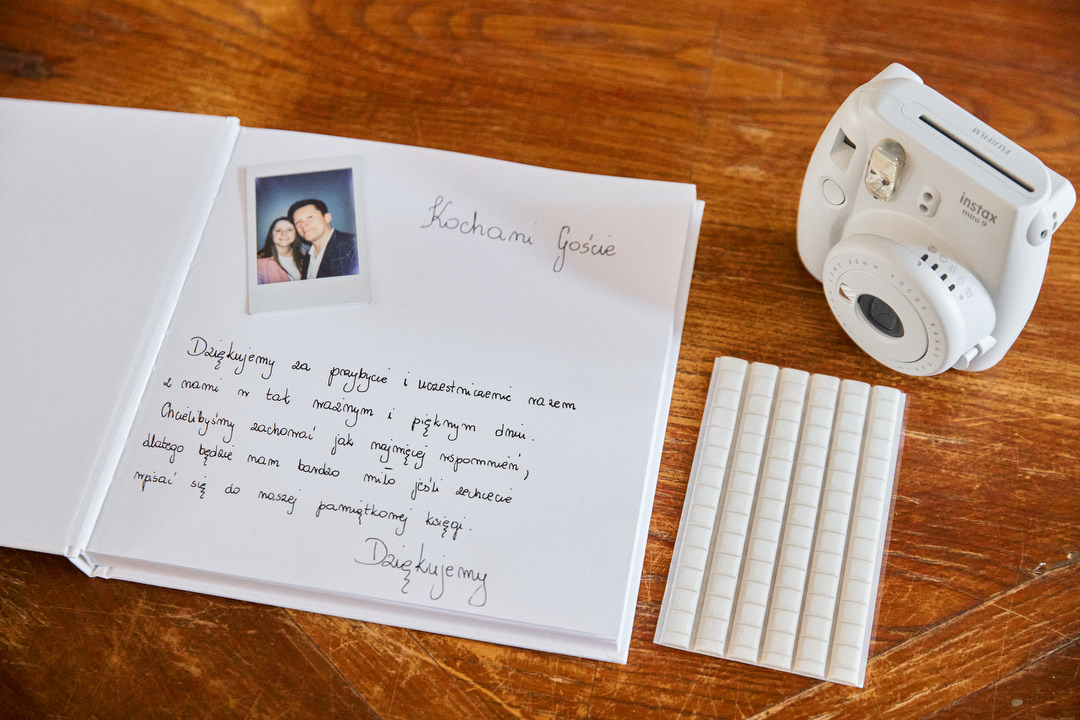 Kochani Goście
Dziękujemy za przybycie i uczestniczenie razem
z nami w tak ważnym i pięknym dniu.
Chcielibyśmy zachować jak najwięcej wspomnień,
dlatego będzie nam bardzo miło jeśli zechcecie
wpisać się do naszej pamiątkowej księgi.
Dziękujemy
FUJIFILM
instax
mini 9